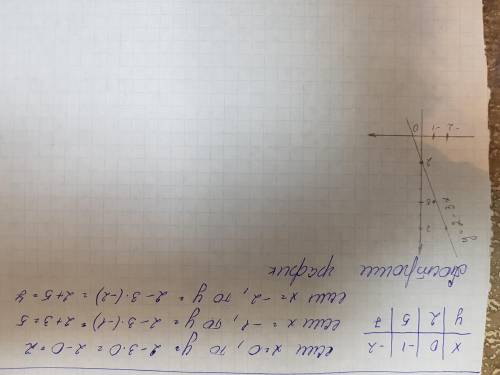 x 0 -1 -2
y 2 5 7
если x=0, то y= 2-3·0 = 2-0=2
если x= -1, то y= 2-3·(-1)= 2+3=5
если x= -2, то y= 2-3·(-2)= 2+5=7
Построим график
y=2-3x
7
5
2
-2 -1 0